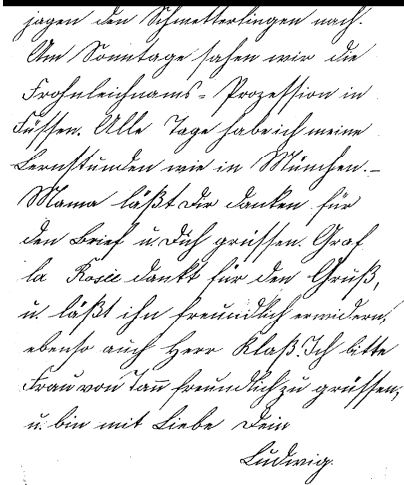 jagen den Schmetterlingen nach.
Am Sonntage sahen wir die
Frohnleichnams-Prozession in
Füssen. Alle Tage habe ich meine
Lernstunden wie in München.–
Mama läßt Dir danken für
den Brief u. Dich grüssen. Graf
la Rosée dankt für den Gruß,
u. läßt ihn freundlich erwidern,
ebenso auch Herr Klaß. Ich bitte
Frau von Tañ freundlich zu grüssen,
u. bin mit Liebe Dein
Ludwig.